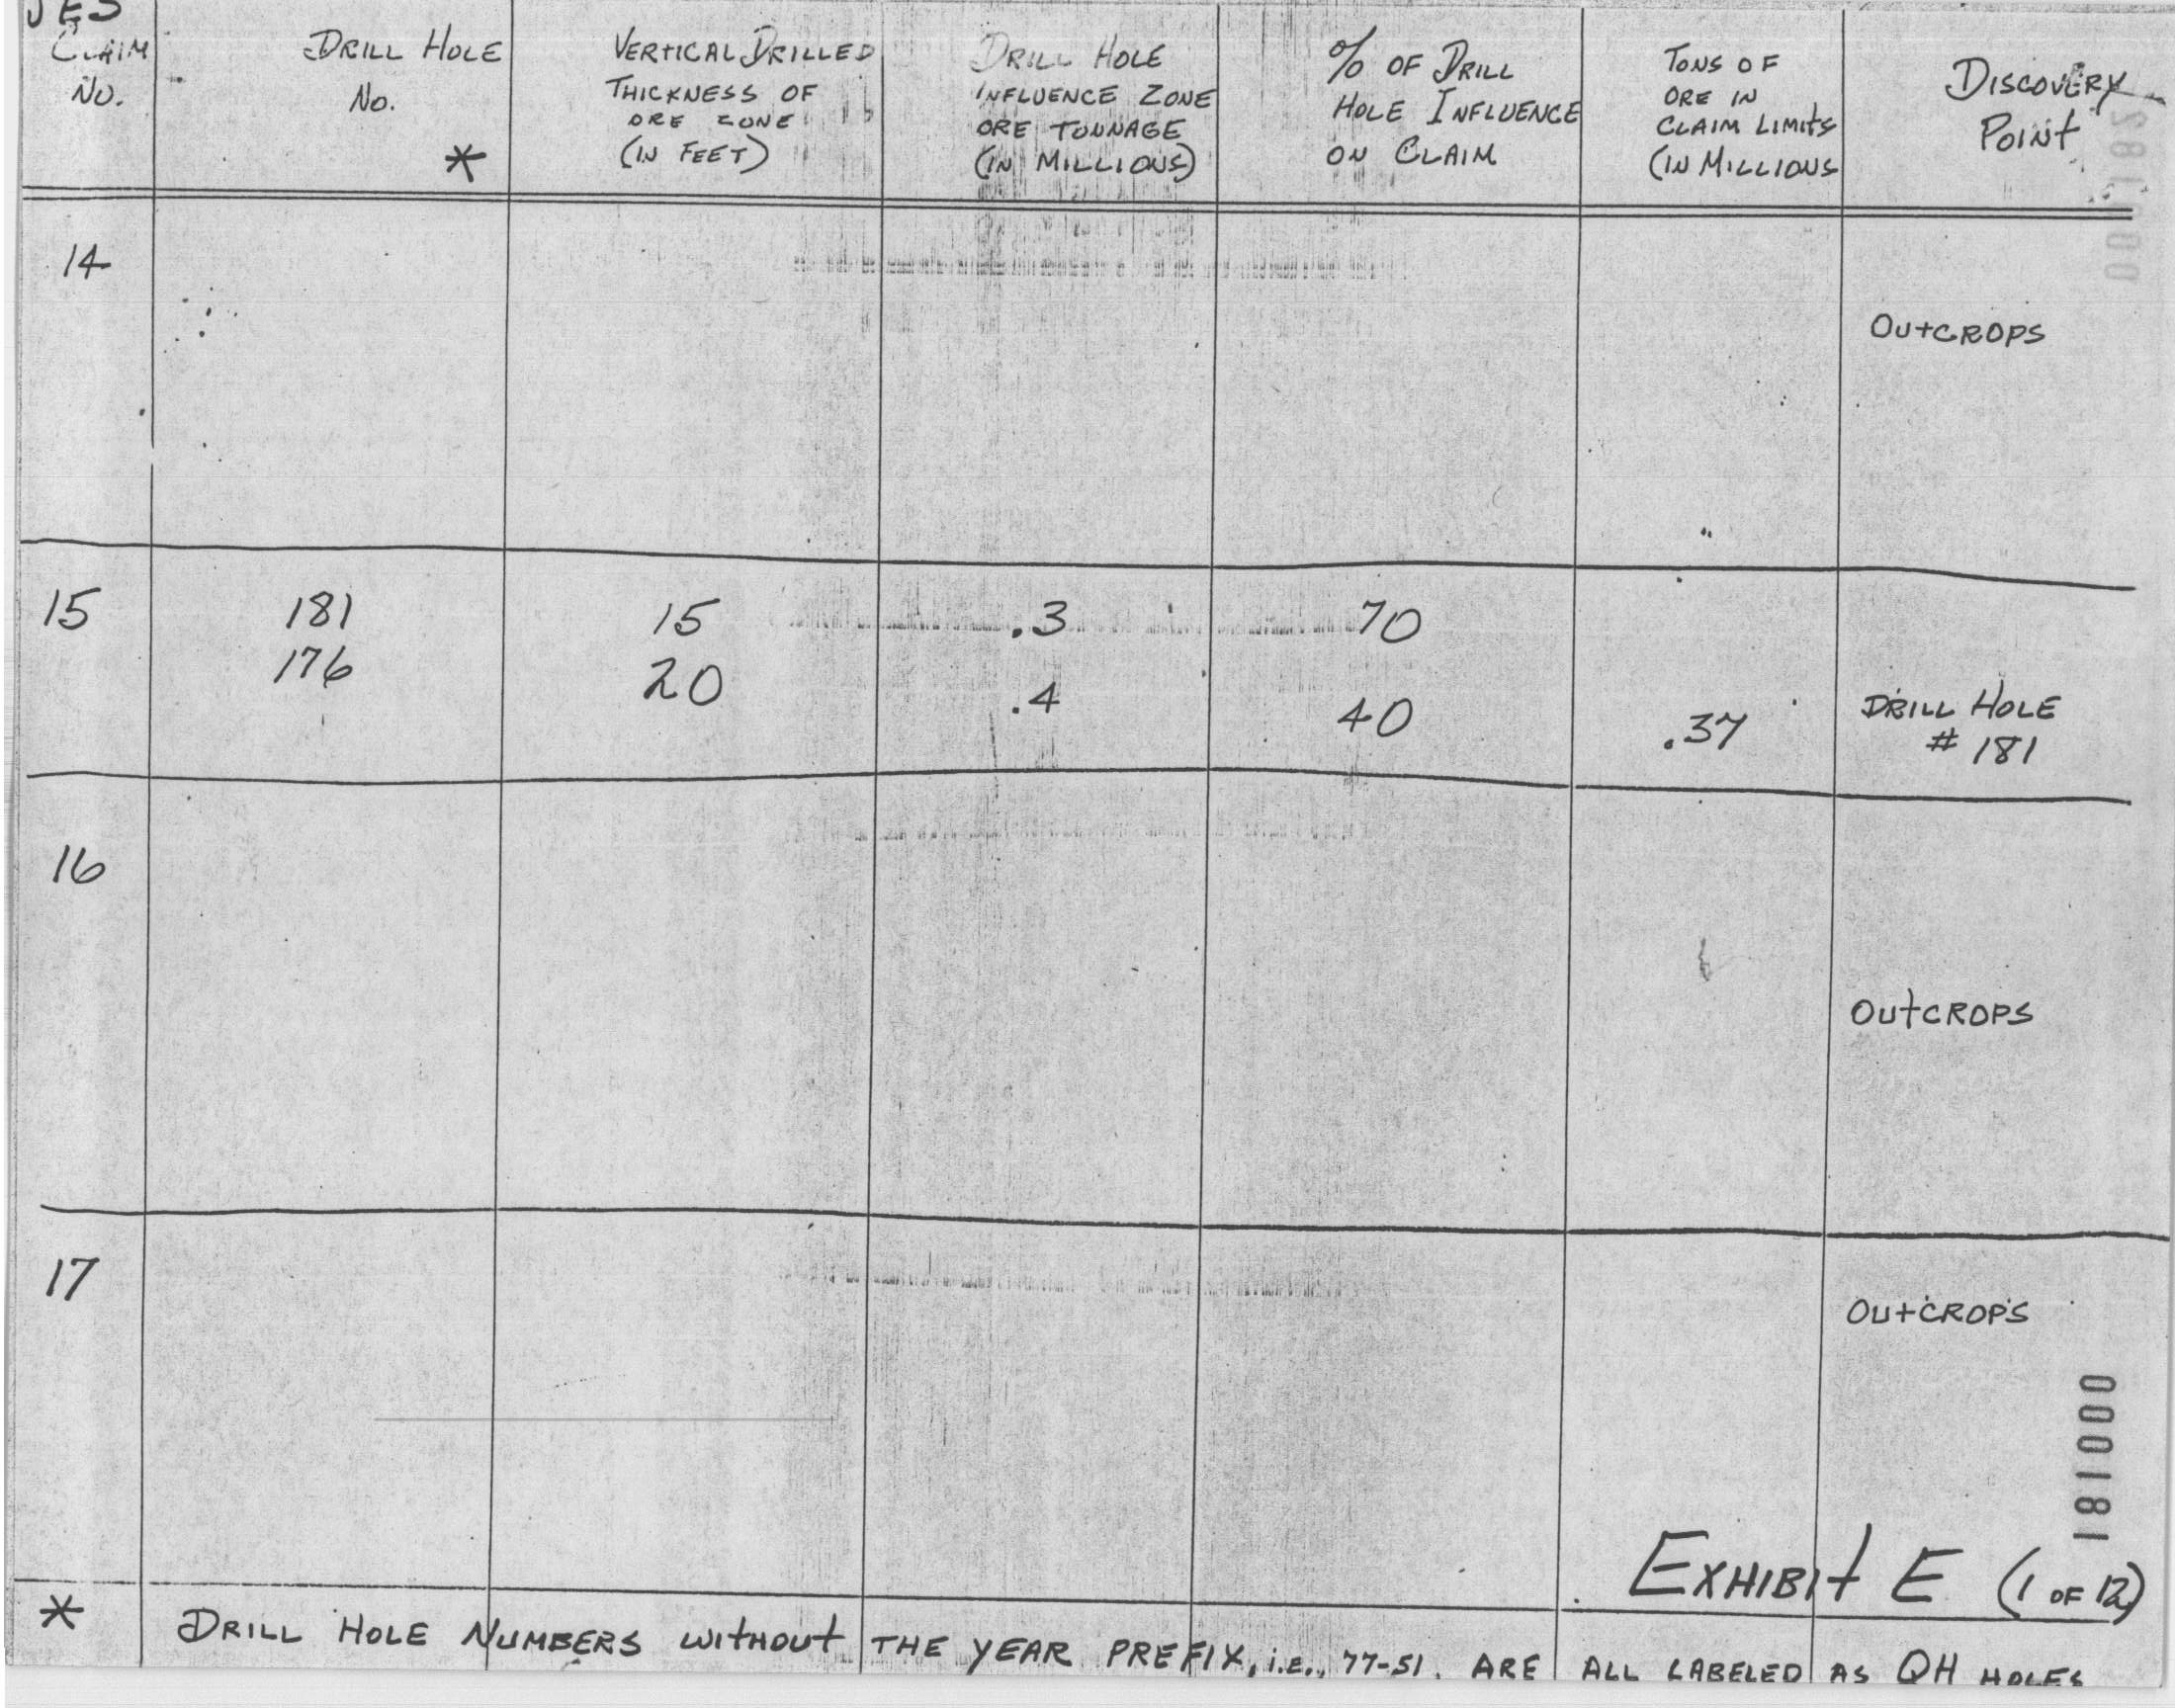 JES
CLAIM No.
DRILL HOLE No. *
VERTICAL DRILLED THICKNESS OF ORE ZONE (IN FEET)
DRILL HOLE INFLUENCE ZONE ORE TONNAGE (IN MILLIONS)
% OF DRILL HOLE INFLUENCE ON CLAIM
TONS OF ORE IN CLAIM LIMITS (IN MILLIONS
DISCOVERY POINT
14
OUTCROPS
15 181 15 .3 70
176 20 .4 40 .37 DRILL HOLE
# 181
16
OUTCROPS
17
OUTCROPS
000181
EXHIBIT E (1 OF 12)
* DRILL HOLE NUMBERS WITHOUT THE YEAR PREFIX, i.e., 77-51. ARE ALL LABELED AS QH HOLES